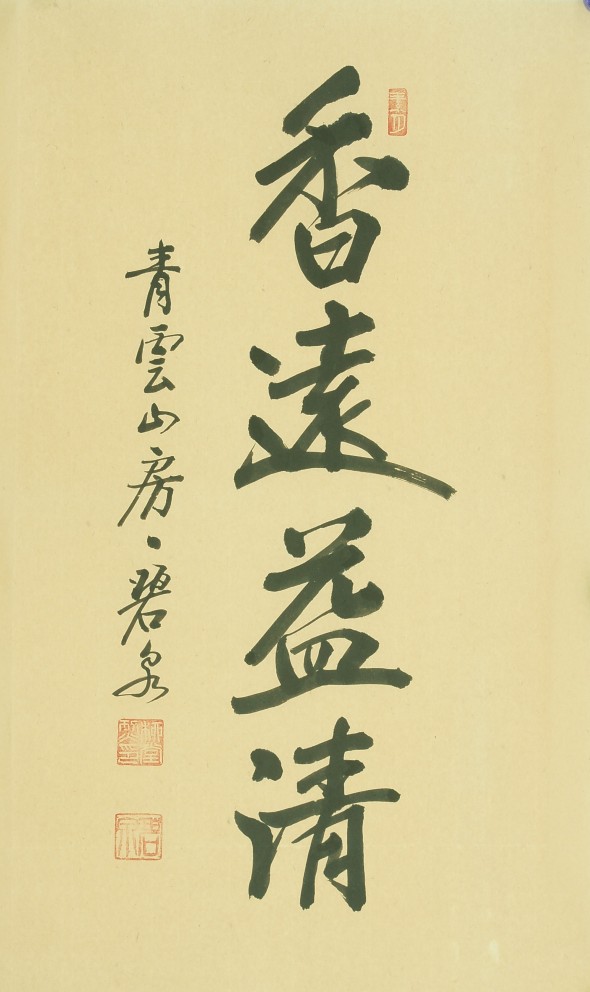 香遠益清
青雲山房、碧泉
碧泉